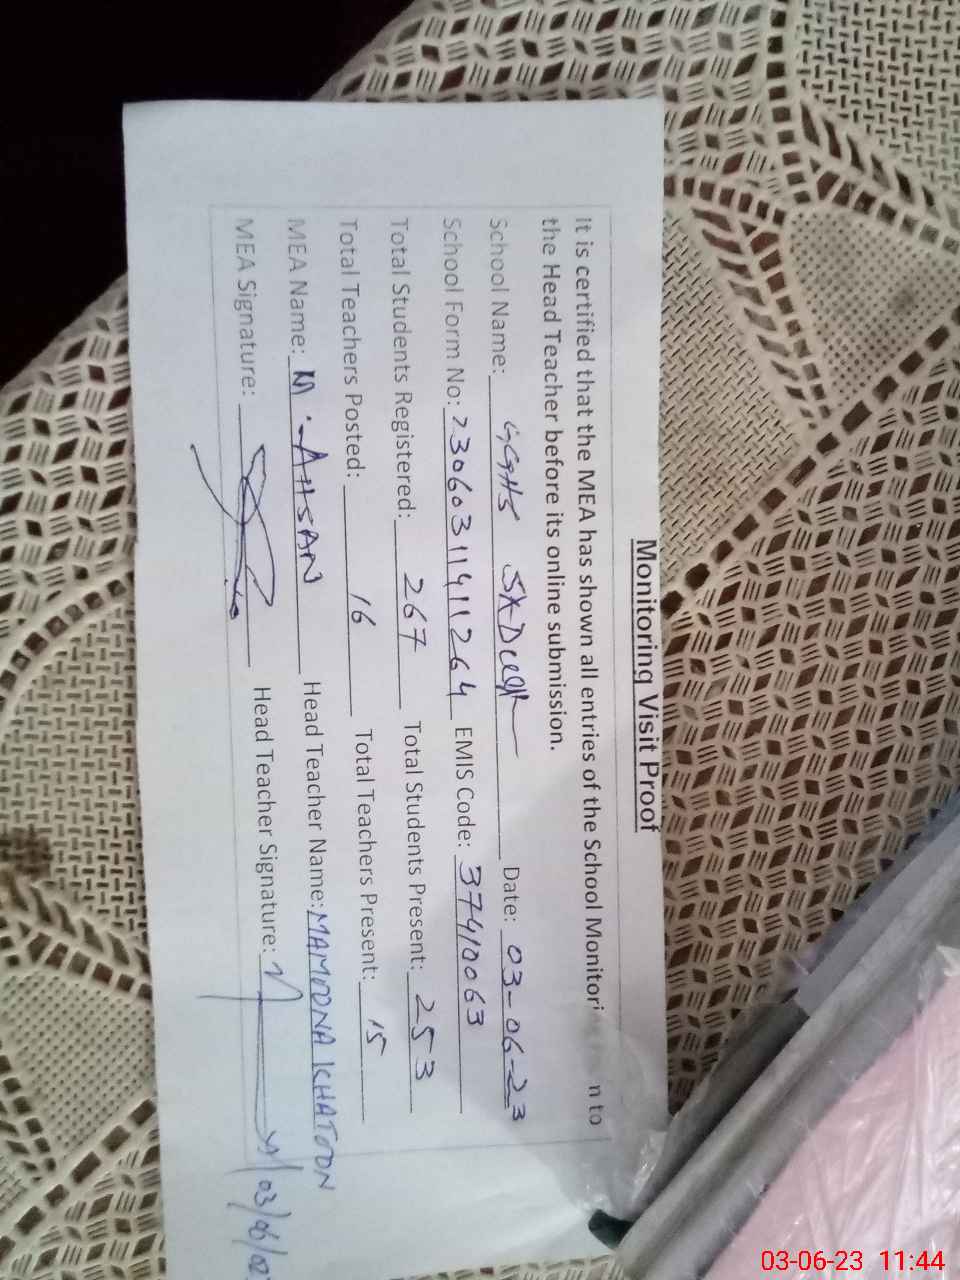 Monitoring Visit Proof
It is certified that the MEA has shown all entries of the School Monitori n to
the Head Teacher before its online submission.
School Name: GGHS Date: 03-06-23
School Form No: 23060311411264 EMIS Code: 37410063
Total Students Registered: 267 Total Students Present: 253
Total Teachers Posted: 16 Total Teachers Present: 15
MEA Name: M. AHSAN Head Teacher Name: MAMOONA KHATOON
MEA Signature: Head Teacher Signature:
03-06-23 11:44